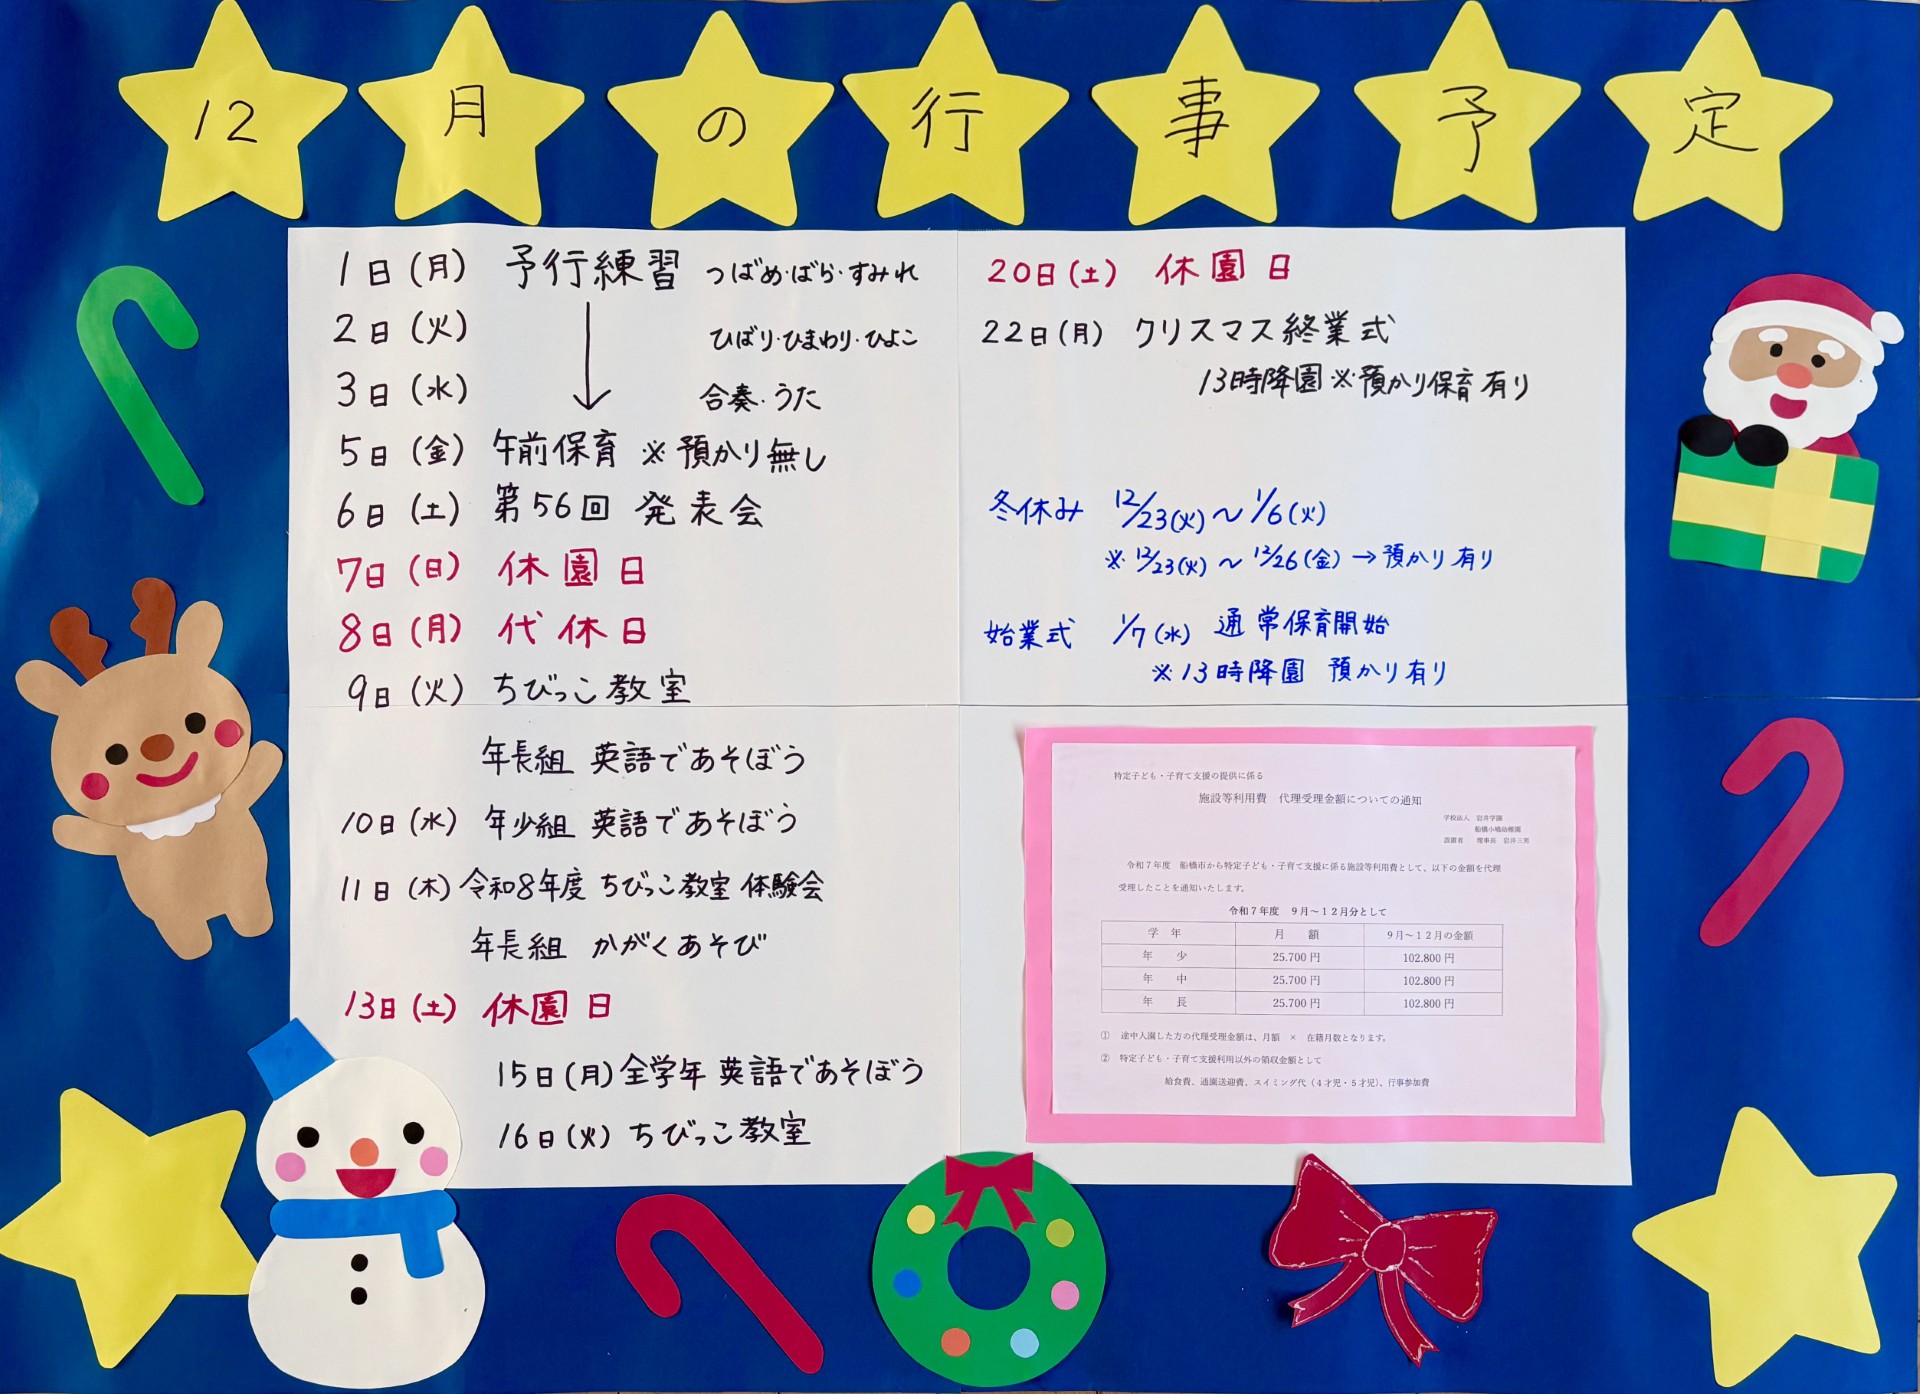 12月の行事予定
1日(月) 予行練習 つばめ・ばら・すみれ
2日(火) ひばり・ひまわり・ひよこ
3日(水) 合奏・うた
5日(金) 午前保育 ※預かり無し
6日(土) 第56回 発表会
7日(日) 休園日
8日(月) 代休日
9日(火) ちびっこ教室
年長組 英語であそぼう
10日(水) 年少組 英語であそぼう
11日(木) 令和8年度 ちびっこ教室 体験会
年長組 かがくあそび
13日(土) 休園日
15日(月) 全学年 英語であそぼう
16日(火) ちびっこ教室
20日(土) 休園日
22日(月) クリスマス終業式
13時降園 ※預かり保育有り
冬休み 12/23(火)～1/6(火)
※12/23(火)～12/26(金)→預かり有り
始業式 1/7(水) 通常保育開始
※13時降園 預かり有り
特定子ども・子育て支援の提供に係る
施設等利用費 代理受理金額についての通知
学校法人 岩井学園
船橋小鳩幼稚園
設置者 理事長 岩井三男
令和7年度 船橋市から特定子ども・子育て支援に係る施設等利用費として、以下の金額を代理
受理したことを通知いたします。
令和7年度 9月～12月分として
学年 月額 9月～12月の金額
年少 25.700円 102.800円
年中 25.700円 102.800円
年長 25.700円 102.800円
① 途中入園した方の代理受理金額は、月額 × 在籍月数となります。
② 特定子ども・子育て支援利用以外の領収金額として
給食費、通園送迎費、スイミング代(4才児・5才児)、行事参加費